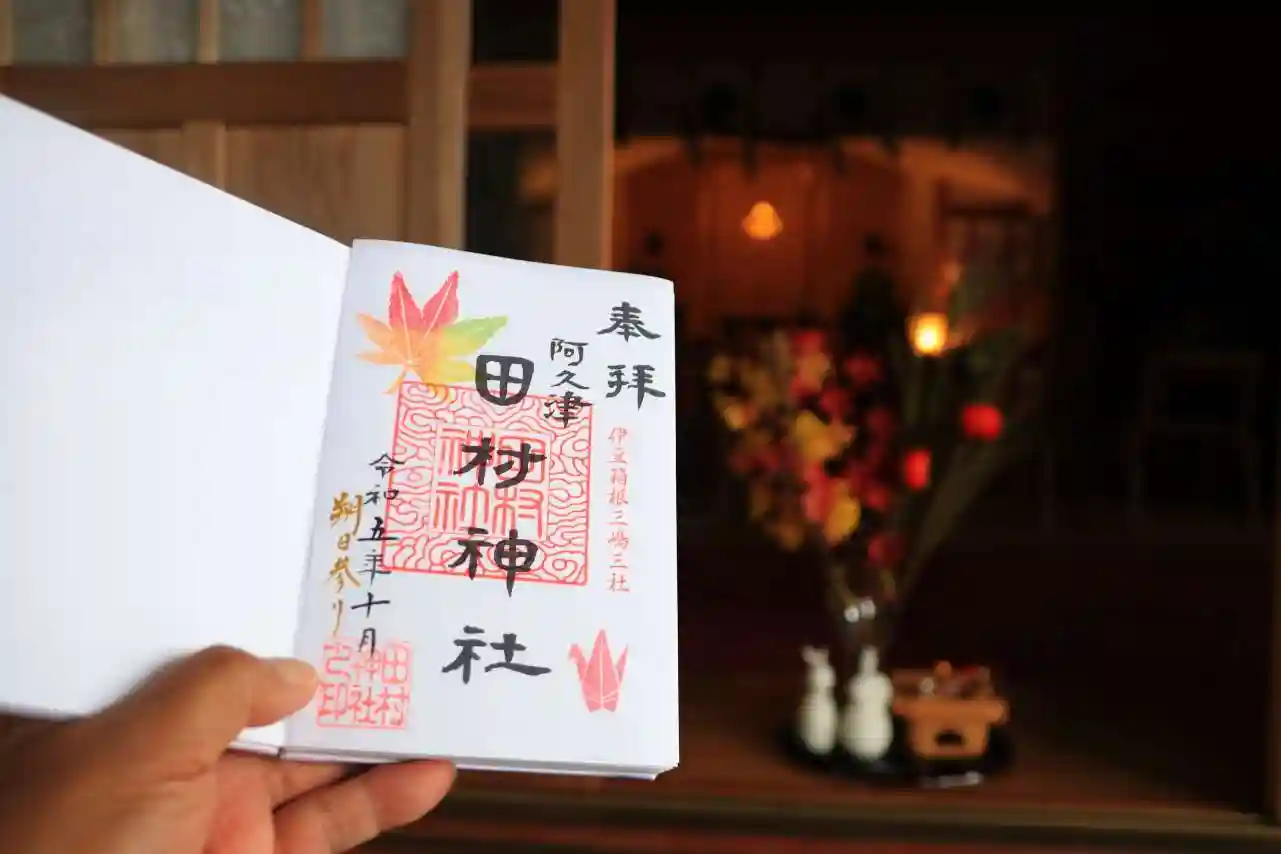 奉拝
伊豆箱根三嶋三社
阿久津
田村神社
田村
神社
令和五年十月
朔日参り
田村
神社
之印